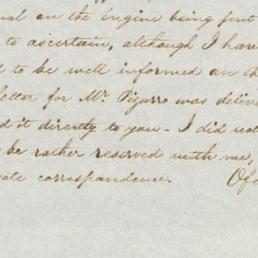 on the Engine being put
to ascertain, although I have
to be well informed on th
letter for Mr. Pizarro was deliv
d it directly to you - I did not
be rather reserved with me,
ate correspondence. Of